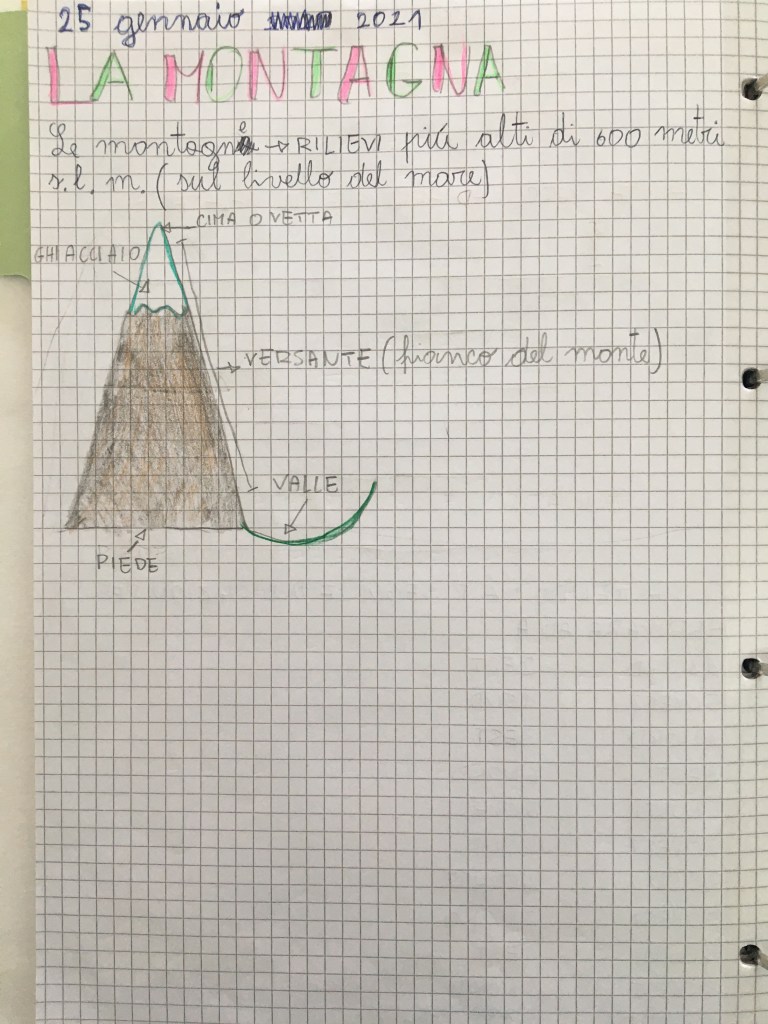 25 gennaio 2021
LA MONTAGNA
Le montagne → RILIEVI più alti di 600 metri
s.l.m. (sul livello del mare)
CIMA O VETTA
GHIACCIAIO
VERSANTE (fianco del monte)
VALLE
PIEDE